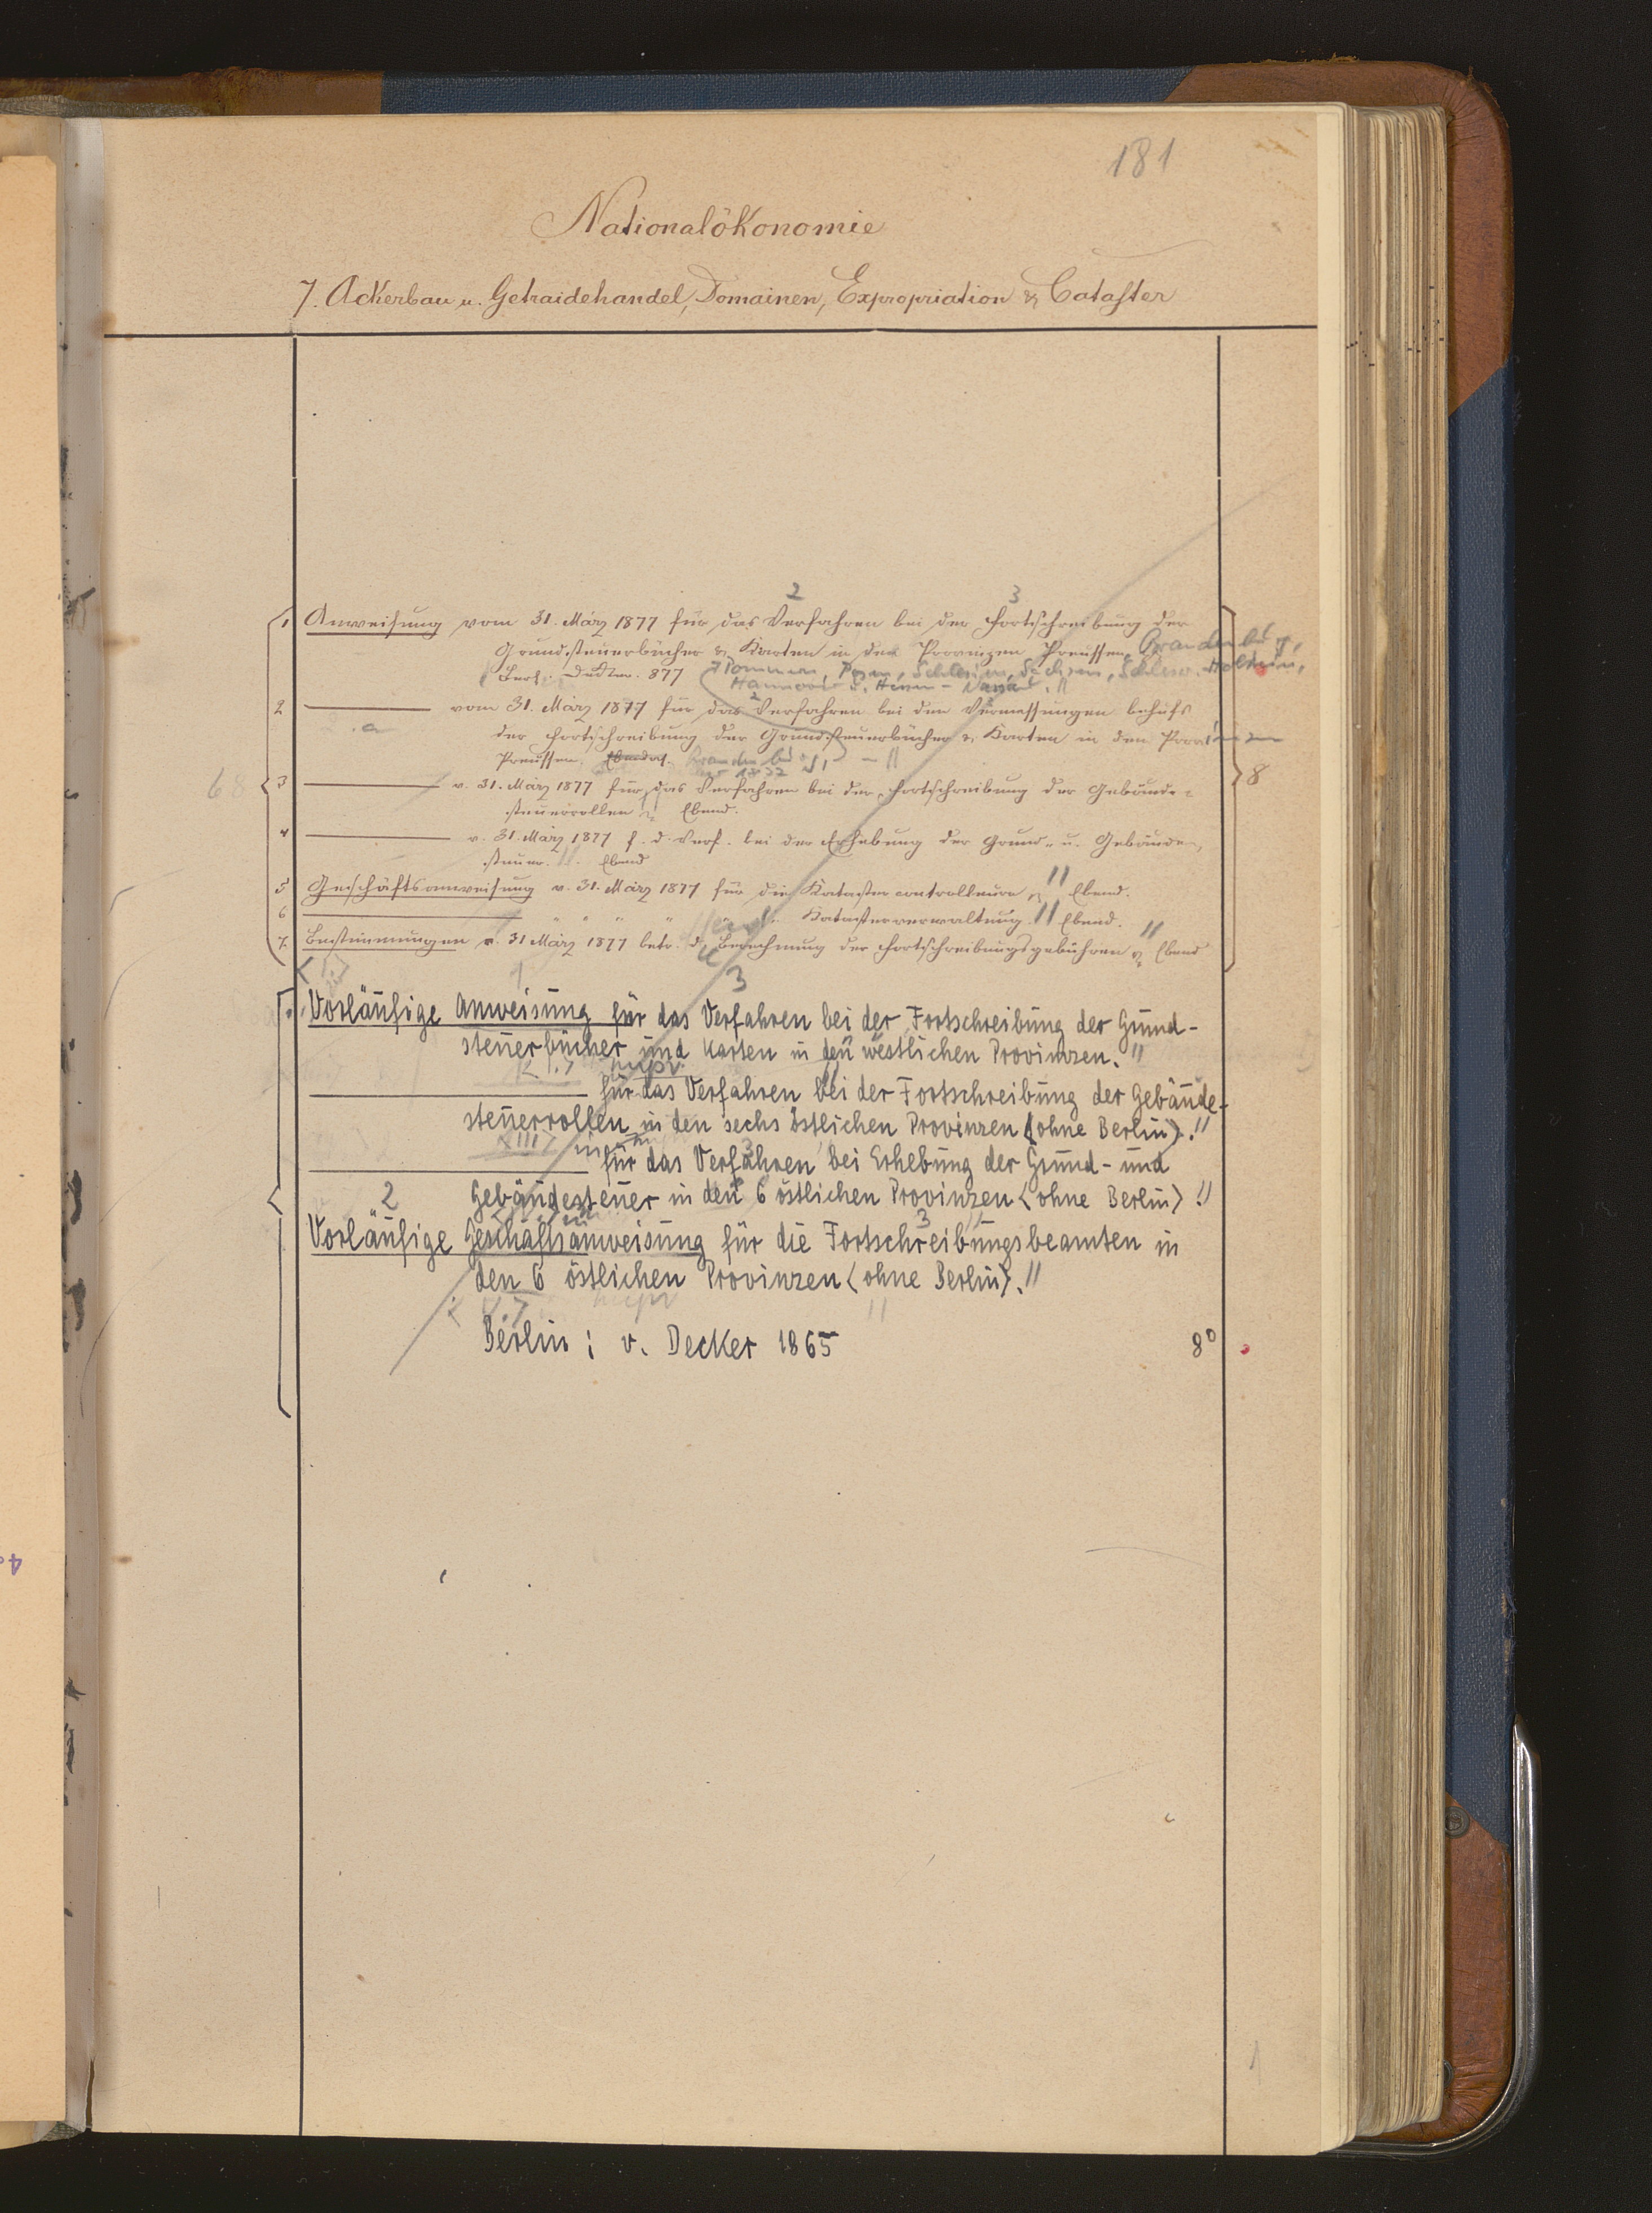 181
Nationalökonomie
7. Ackerbau u. Getraidehandel, Domainen, Expropriation & Cataster
2 3
1 Anweisung vom 31. März 1877 für das Verfahren bei der Fortschreibung der
Grundsteuerbücher & Karten in den Provinzen Preussen, Brandenburg,
Berl. Decker. 877 Pommern, Posen, Schlesien, Sachsen, Schlesw. Holstein,
Hannover u. Hessen-Nassau. //
2 vom 31. März 1877 für das Verfahren bei den Vermessungen behufs
der Fortschreibung der Grundsteuerbücher & Karten in den Provinzen
Preussen, Ebendas. Brandenburg
68 3 v. 31. März 1877 für das Verfahren bei der Fortschreibung der Gebäude= 8
steuerrollen Ebend.
4 v. 31. März 1877 f. d. Verf. bei der Erhebung der Grund- u. Gebäude
steuer. // Ebend
5 Geschäftsanweisung v. 31. März 1877 für die Katastercontrolleure // Ebend.
6 " " " " Katasterverwaltung // Ebend.
7. Bestimmungen v. 31 März 1877 betr. d. Berechnung der Fortschreibungsgebühren // Ebend
<I.> 1 3
Vorläufige Anweisung für das Verfahren bei der Fortschreibung der Grund-
steuerbücher und Karten in den westlichen Provinzen. //
für das Verfahren bei der Fortschreibung der Gebäude-
steuerrollen in den sechs östlichen Provinzen (ohne Berlin). //
<III>
für das Verfahren bei Erhebung der Grund- und
2 Gebäudesteuer in den 6 östlichen Provinzen <ohne Berlin> //
3
Vorläufige Geschäftsanweisung für die Fortschreibungsbeamten in
den 6 östlichen Provinzen <ohne Berlin>. //
Berlin: v. Decker 1865 8°
1